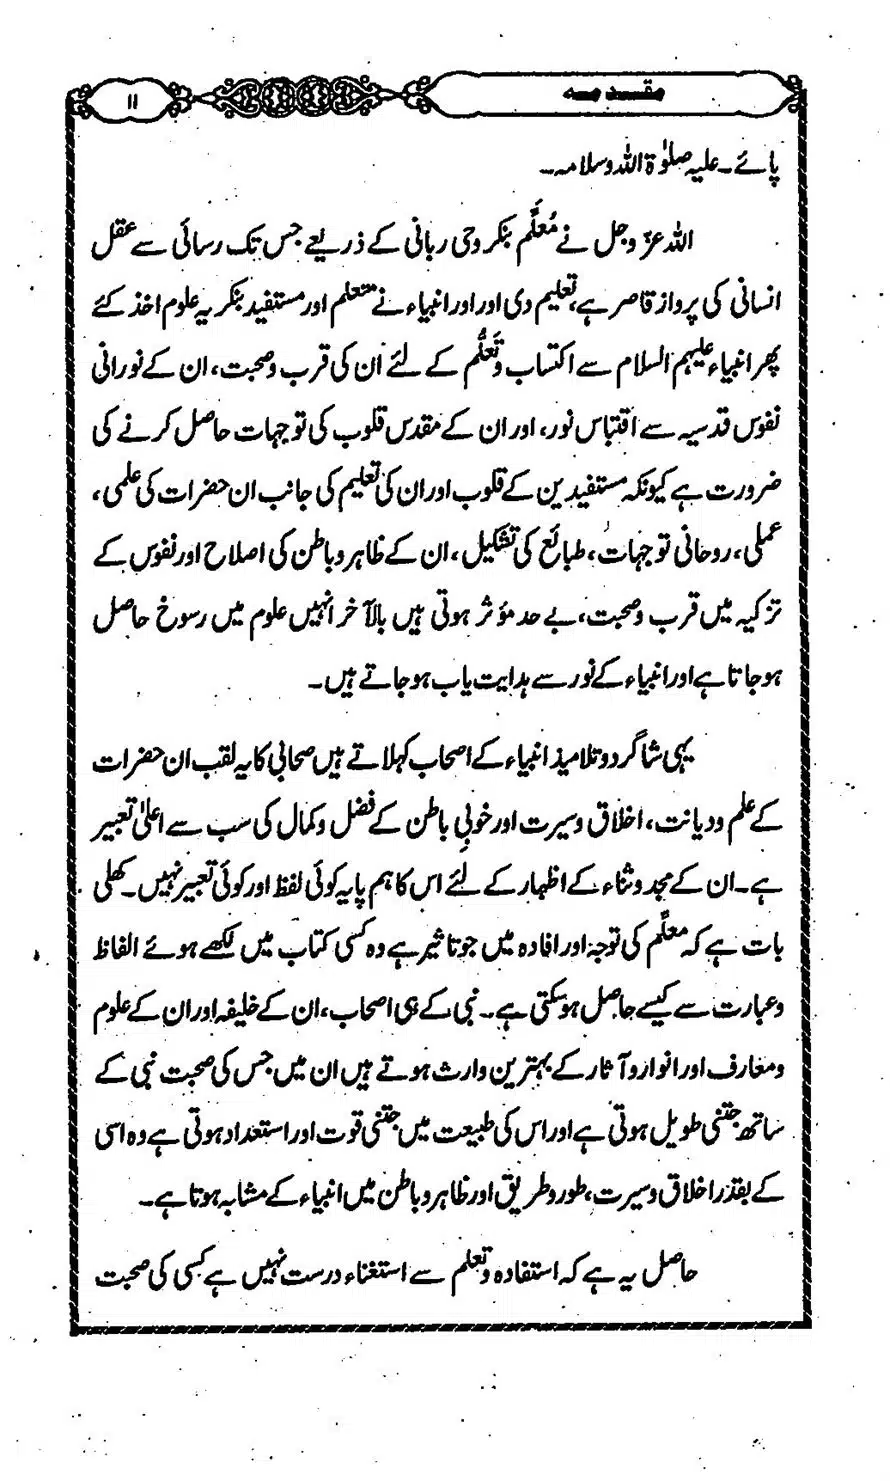 مقدمہ ۱۱
پائے۔ علیہ صلوٰۃ اللہ وسلامہ۔
اللہ عزّ وجل نے مُعلَّم بنکر وحی ربانی کے ذریعے جس تک رسائی سے عقل
انسانی کی پرواز قاصر ہے، تعلیم دی اور اور انبیاء نے متعلم اور مستفید بنکر یہ علوم اخذ کئے
پھر انبیاء علیہم السلام سے اکتساب و تَعلُّم کے لئے ان کی قرب و صحبت، ان کے نورانی
نفوس قدسیہ سے اقتباس نور، اور ان کے مقدس قلوب کی توجہات حاصل کرنے کی
ضرورت ہے کیونکہ مستفیدین کے قلوب اور ان کی تعلیم کی جانب ان حضرات کی علمی،
عملی، روحانی توجہات، طبائع کی تشکیل، ان کے ظاہر و باطن کی اصلاح اور نفوس کے
تزکیہ میں قرب و صحبت، بے حد مؤثر ہوتی ہیں بالآخر انہیں علوم میں رسوخ حاصل
ہو جاتا ہے اور انبیاء کے نور سے ہدایت یاب ہو جاتے ہیں۔
یہی شاگرد و تلامیذ انبیاء کے اصحاب کہلاتے ہیں صحابی کا یہ لقب ان حضرات
کے علم و دیانت، اخلاق و سیرت اور خوبیِ باطن کے فضل و کمال کی سب سے اعلیٰ تعبیر
ہے۔ ان کے مجد و ثناء کے اظہار کے لئے اس کا ہم پایہ کوئی لفظ اور کوئی تعبیر نہیں۔ کھلی
بات ہے کہ معلّم کی توجہ اور افادہ میں جو تاثیر ہے وہ کسی کتاب میں لکھے ہوئے الفاظ
و عبارت سے کیسے حاصل ہو سکتی ہے۔ نبی کے ہی اصحاب، ان کے خلیفہ اور ان کے علوم
و معارف اور انوار و آثار کے بہترین وارث ہوتے ہیں ان میں جس کی صحبت نبی کے
ساتھ جتنی طویل ہوتی ہے اور اس کی طبیعت میں جتنی قوت اور استعداد ہوتی ہے وہ اسی
کے بقدر اخلاق و سیرت، طور و طریق اور ظاہر و باطن میں انبیاء کے مشابہ ہوتا ہے۔
حاصل یہ ہے کہ استفادہ و تعلم سے استغناء درست نہیں ہے کسی کی صحبت